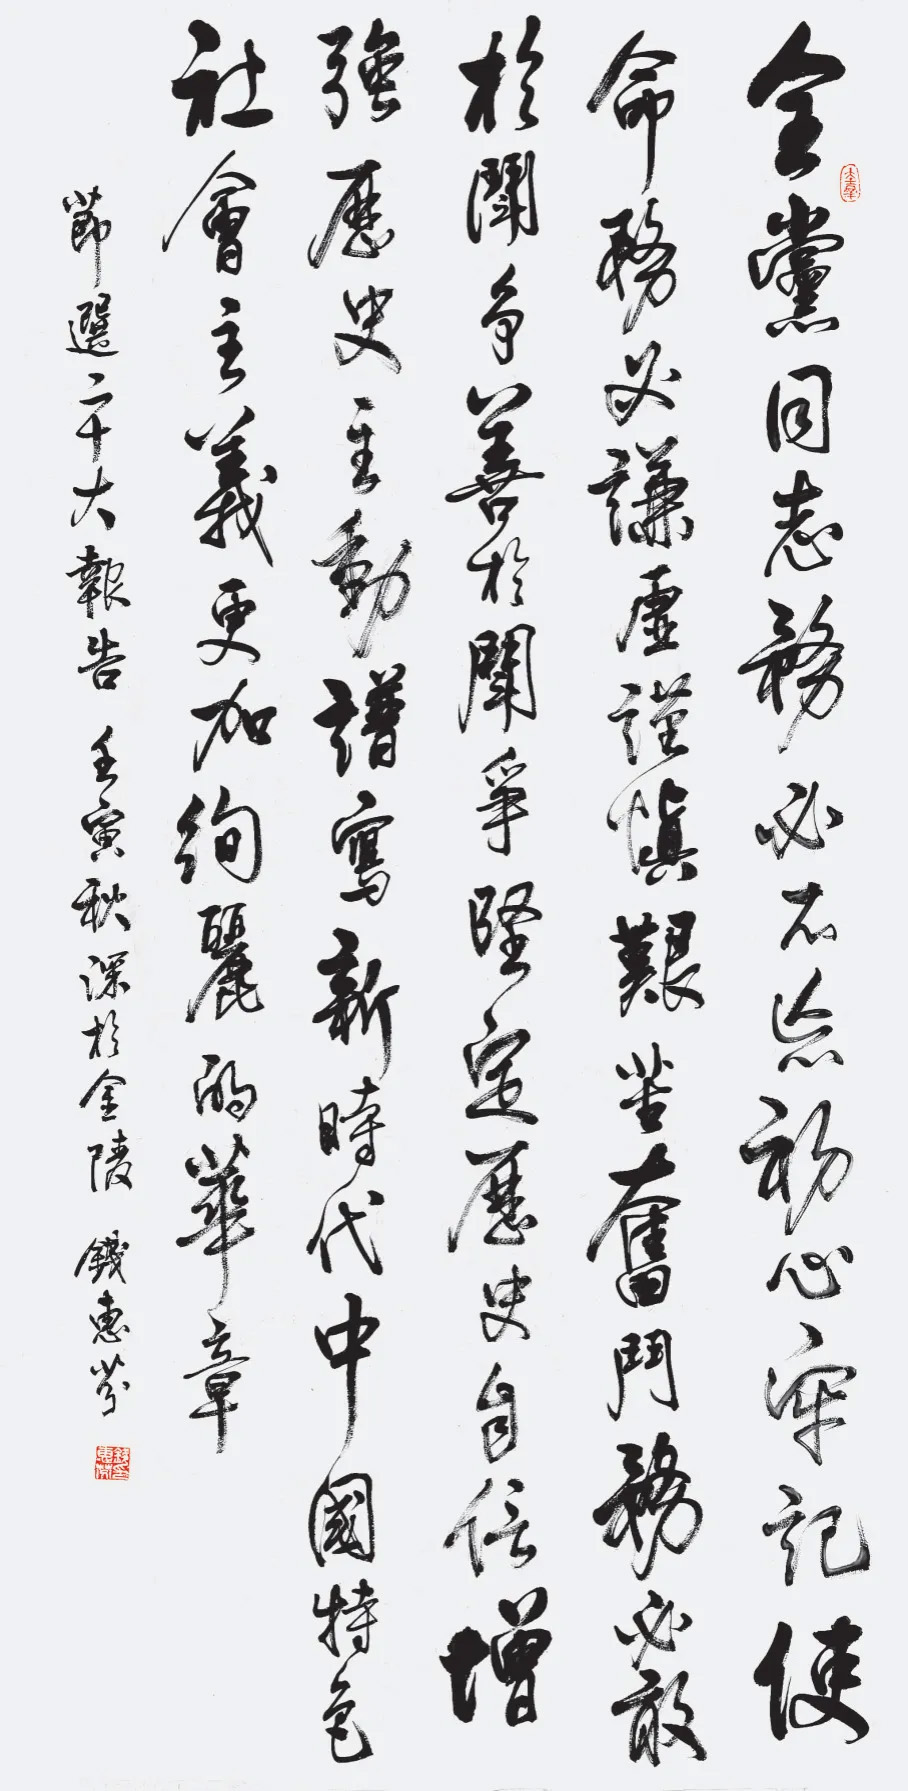 全黨同志務必不忘初心牢記使
命務必謙虛謹慎艱苦奮鬥務必敢
於鬭争善於鬭爭堅定歷史自信增
強歷史主動譜寫新時代中國特色
社會主義更加絢麗的華章
節選二十大報告 壬寅秋深於金陵 錢惠芬